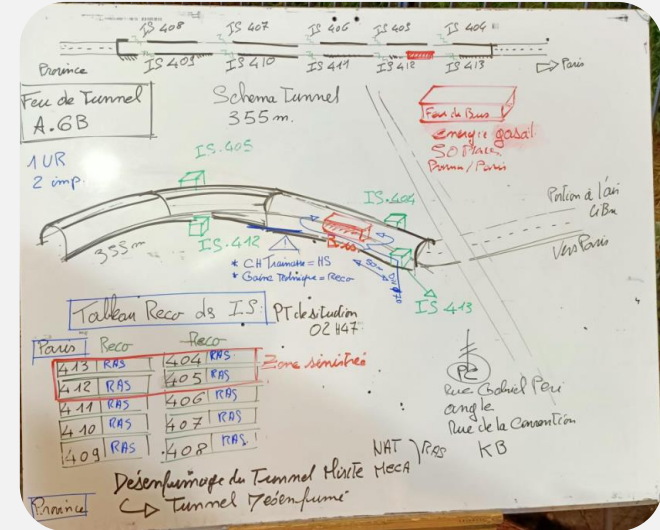 IS 408 IS 407 IS 406 IS 405 IS 404
Province IS 409 IS 410 IS 411 IS 412 IS 413 Paris
Feu de Tunnel
A.6B
Schema Tunnel
355 m.
Feu de Bus
energie gasoil
50 Places
Province/Paris
1 UR
2 imp.
IS.405
IS.404
355 m
IS.412
Bus
50m
* CH Trainasse = HS
* Gaine Technique = Reco
IS 413
Portion à l'air
libre
Vers Paris
Tableau Reco ds I.S:
PT de situation
02H47
Paris Reco Reco
413 RAS 404 RAS
Zone sinistrée
412 RAS 405 RAS
411 RAS 406 RAS
410 RAS 407 RAS
409 RAS 408 RAS
PC
Rue Gabriel Peri
angle
Rue de la Convention
KB
Désenfumage du Tunnel Mixte NAT MECA RAS
Province
Tunnel désenfumé